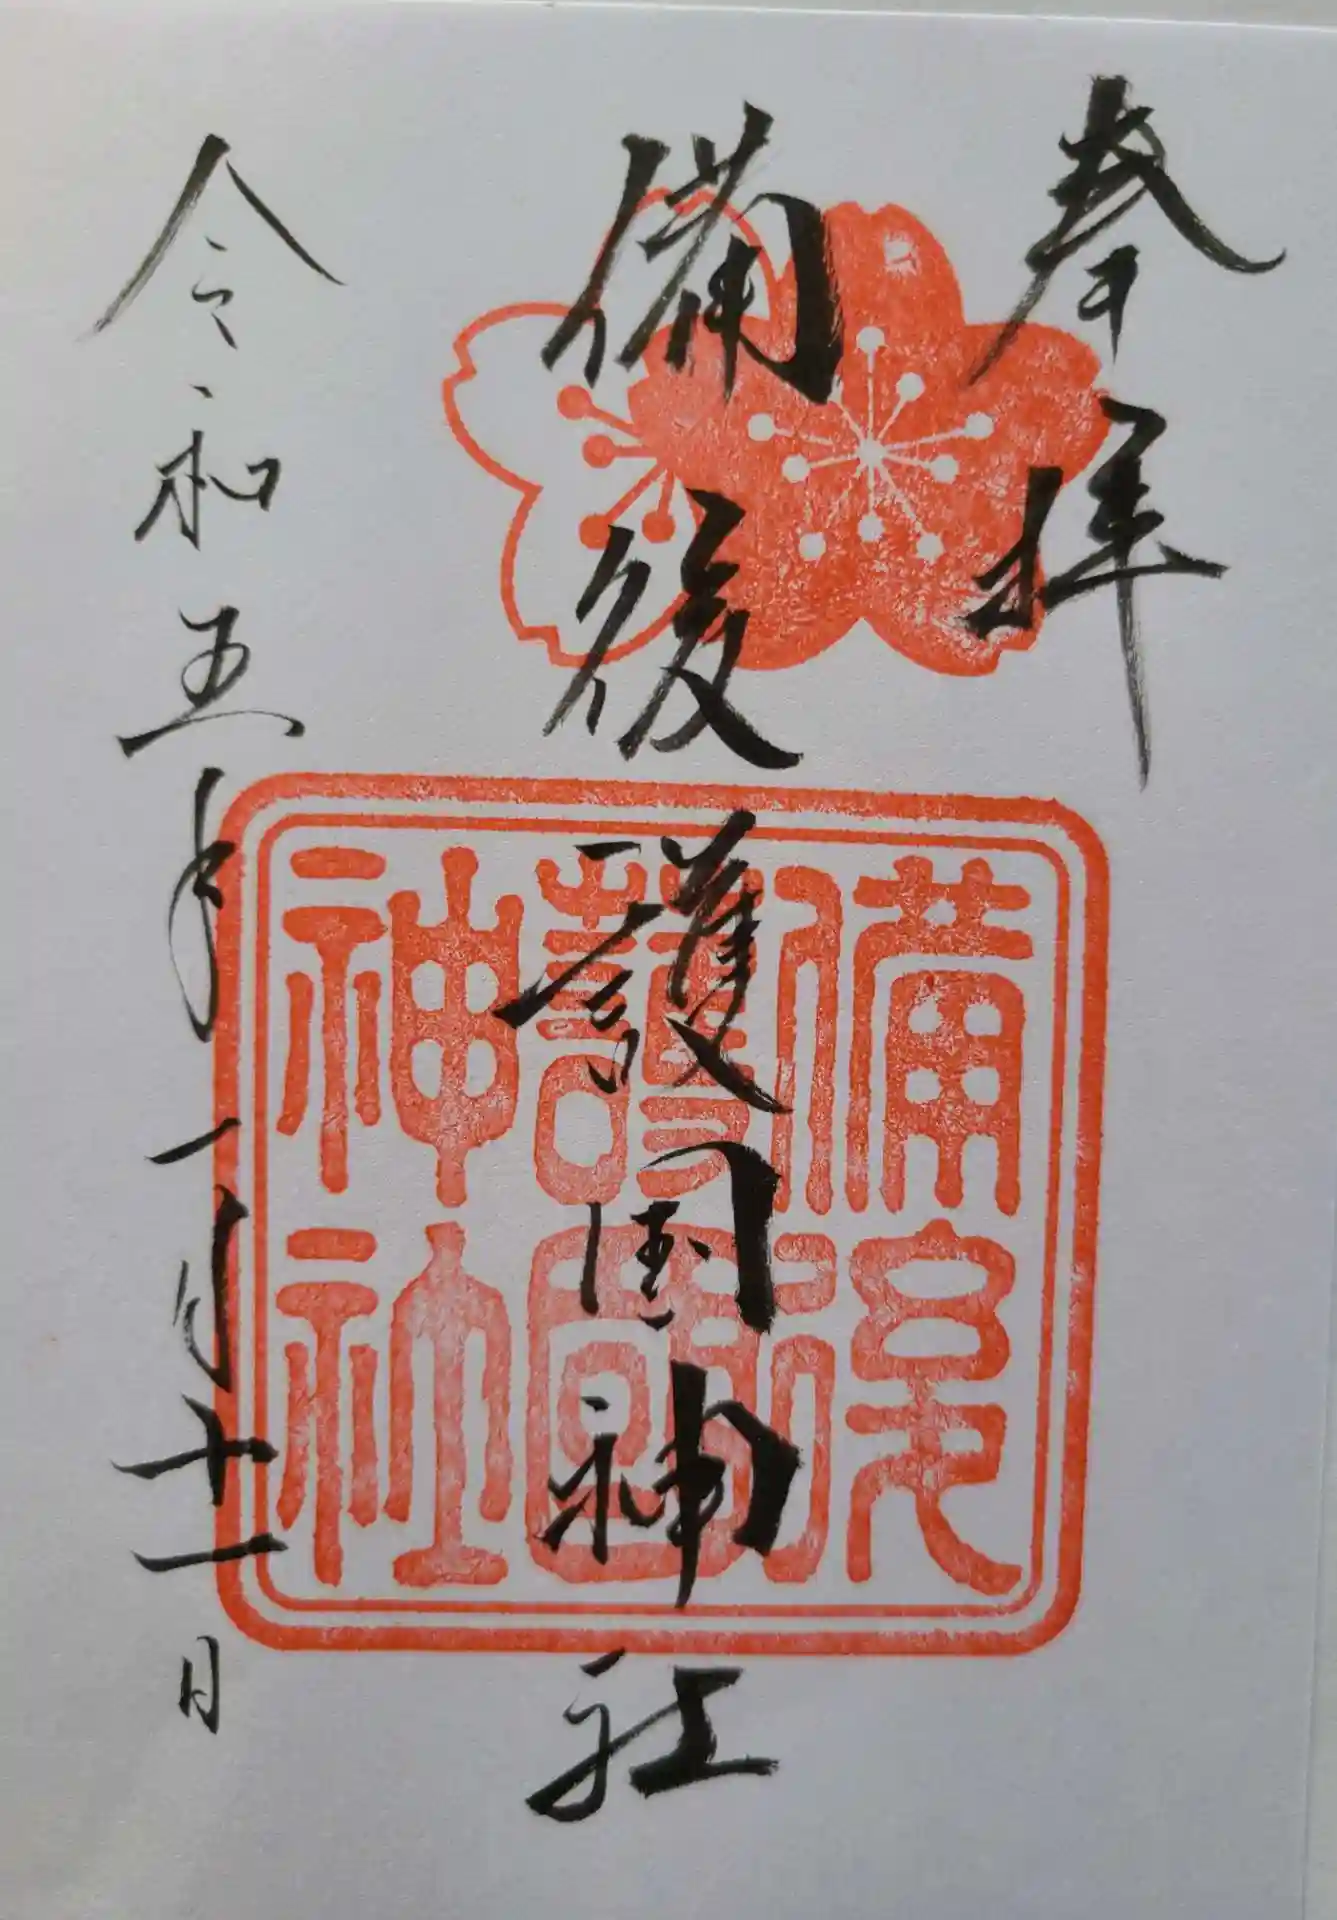 奉拝
備後護国神社
備後
護國
神社
令和五年一月十一日